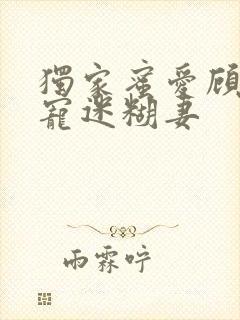 獨家蜜愛顧
寵迷糊妻
雨霖咛